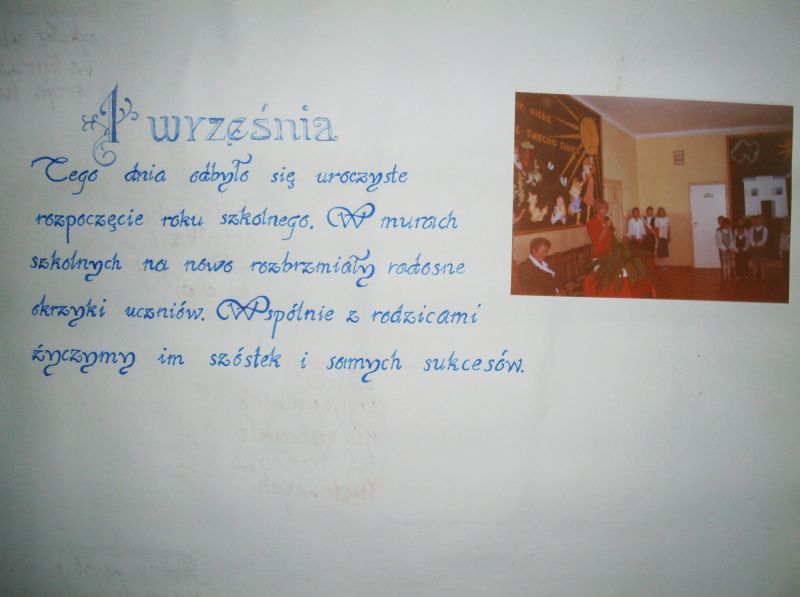 1 września
Tego dnia odbyło się uroczyste
rozpoczęcie roku szkolnego. W murach
szkolnych na nowo rozbrzmiały radosne
okrzyki uczniów. Wspólnie z rodzicami
życzymy im szóstek i samych sukcesów.
NIEBIE
SWIECIŁO SŁOŃCE